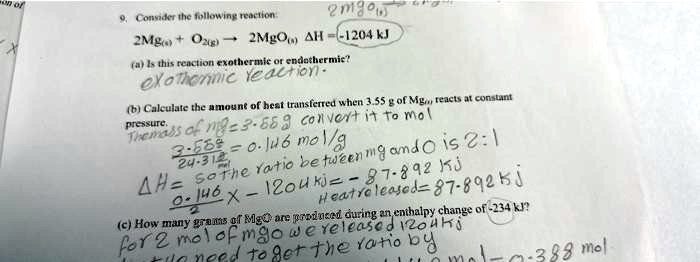 on of
2mgO(s)
9. Consider the following reaction:
2Mg(s) + O2(g) → 2MgO(s) ΔH = -1204 kJ
(a) Is this reaction exothermic or endothermic?
exothermic reaction.
(b) Calculate the amount of heat transferred when 3.55 g of Mg(s) reacts at constant
pressure.
The mass of mg = 3.55g convert it to mol
3.55g
24.312 = 0.146 mol/g
mol
so the ratio between mg and O is 2:1
ΔH = 0.146 X - 1204 kj = - 87.892 kJ
2
Heat released = 87.892 kJ
(c) How many grams of MgO are produced during an enthalpy change of -234 kJ?
for 2 mol of mgo we released 1204 kj
need to get the ratio by
0.388 mol